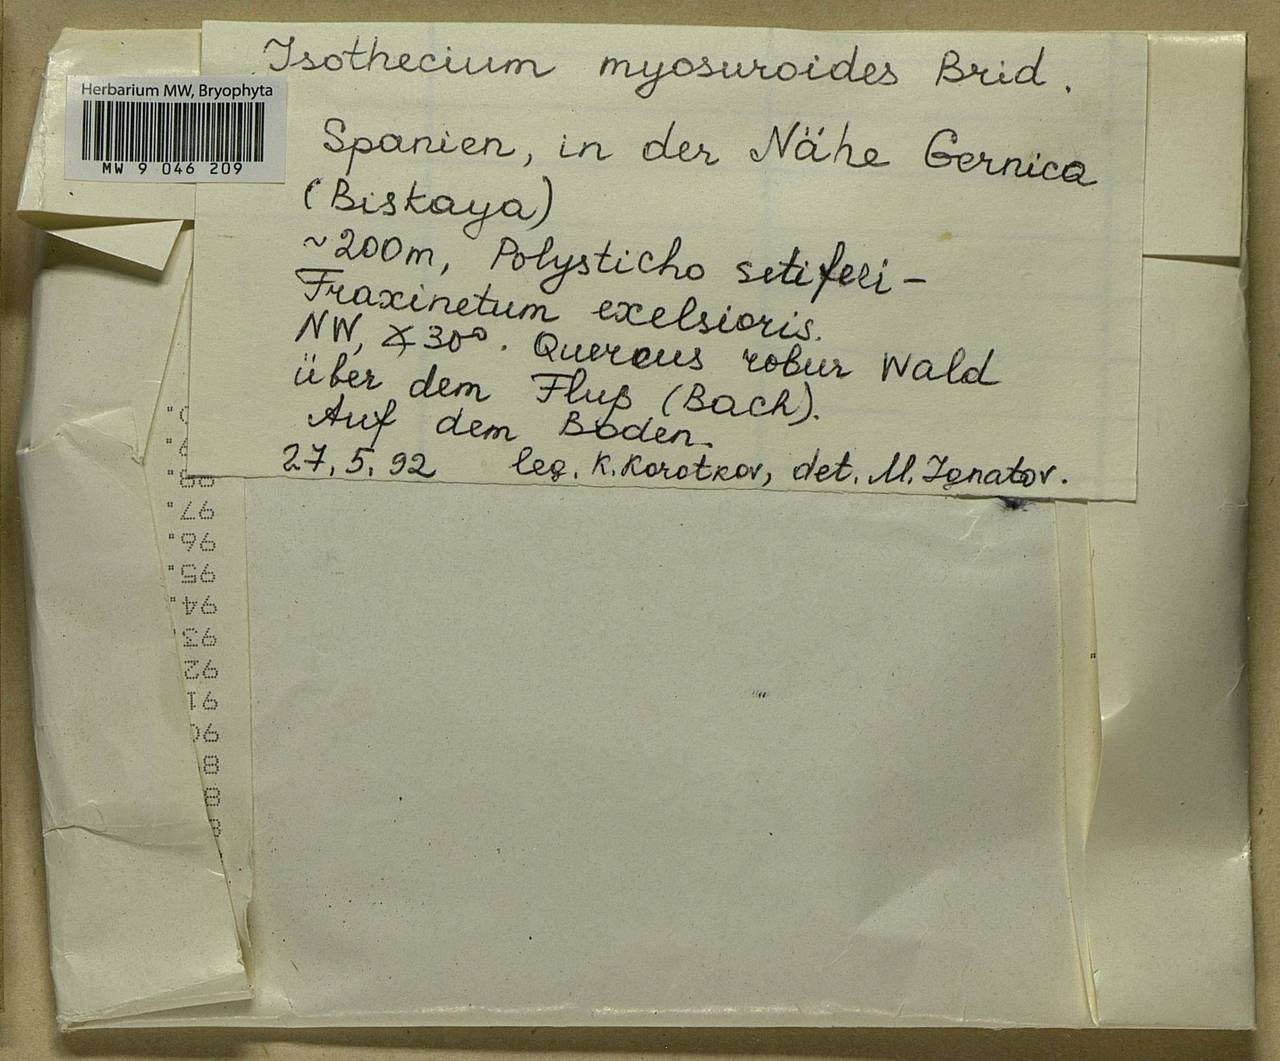 Isothecium myosuroides Brid.
Herbarium MW, Bryophyta
MW 9 046 209
Spanien, in der Nähe Gernica
(Biskaya)
~200m, Polysticho setiferi-
Fraxinetum exelsioris.
NW, ∡30°. Quercus robur Wald
über dem Fluß (Bach).
Auf dem Boden.
27.5.92 leg. K. Korotkov, det. M. Ignatov.
97.
96.
95.
94.
93.
92
91
90